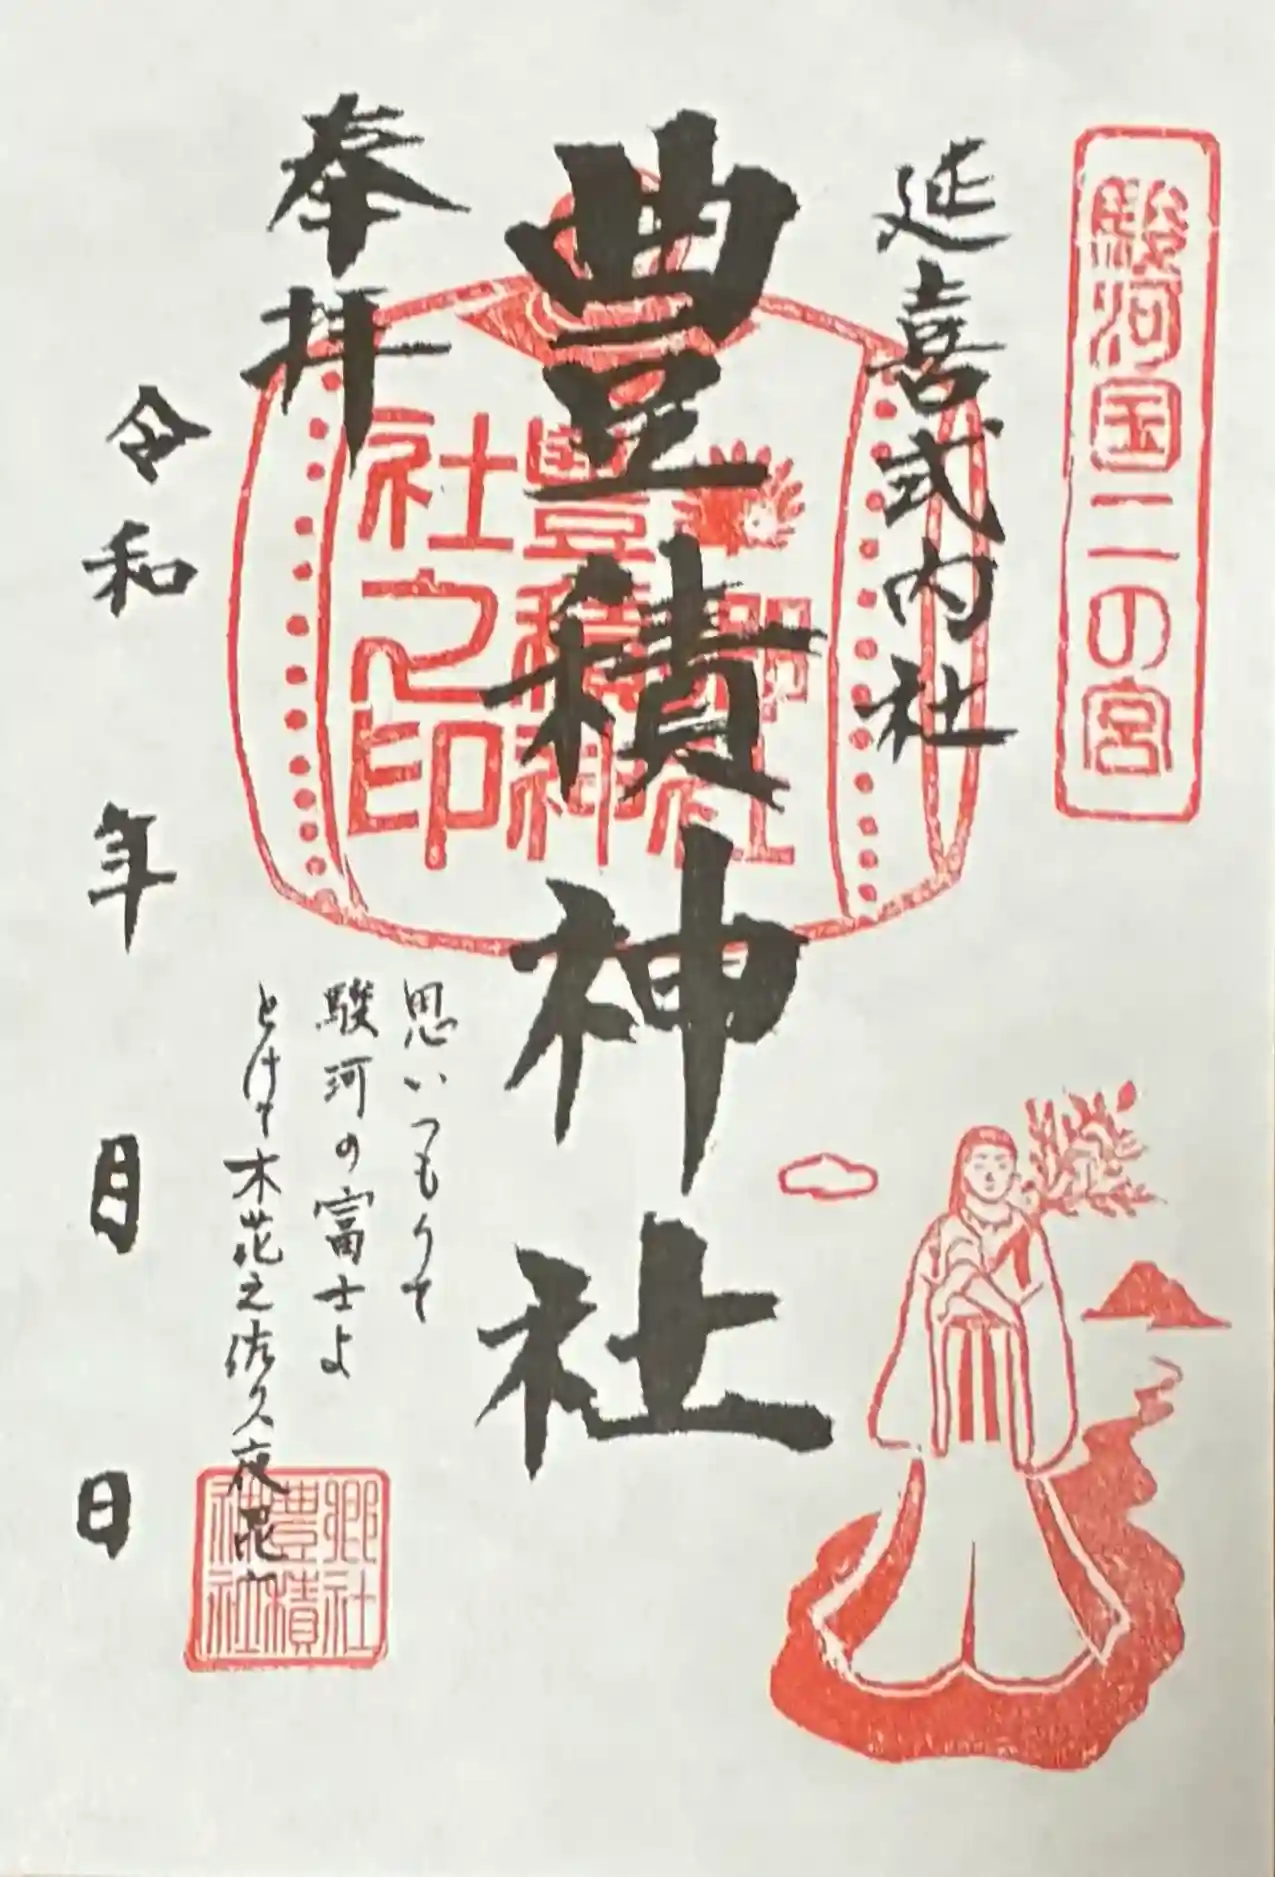 駿河国二の宮
延喜式内社
豊積神社
奉拝
令和 年 月 日
郷社
豊積神
社之印
思いつもりて
駿河の富士よ
とけて木花之佐久夜毘
郷社
豊積
神社